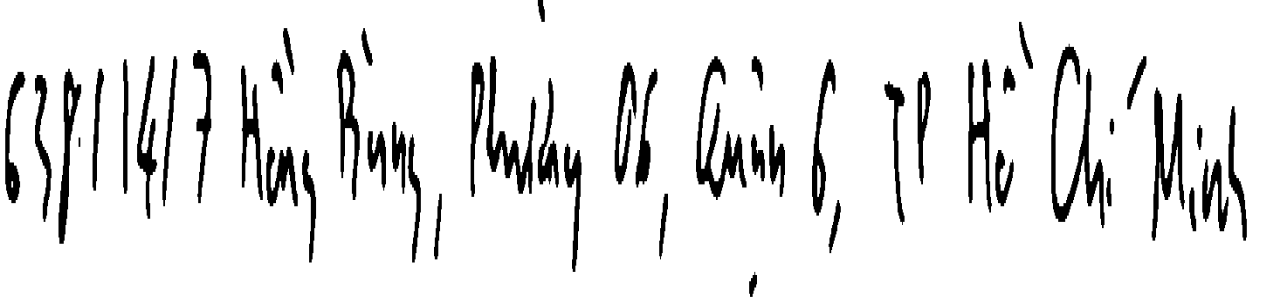 638/14/7 Hồng Bàng, Phường 06, Quận 6, TP Hồ Chí Minh